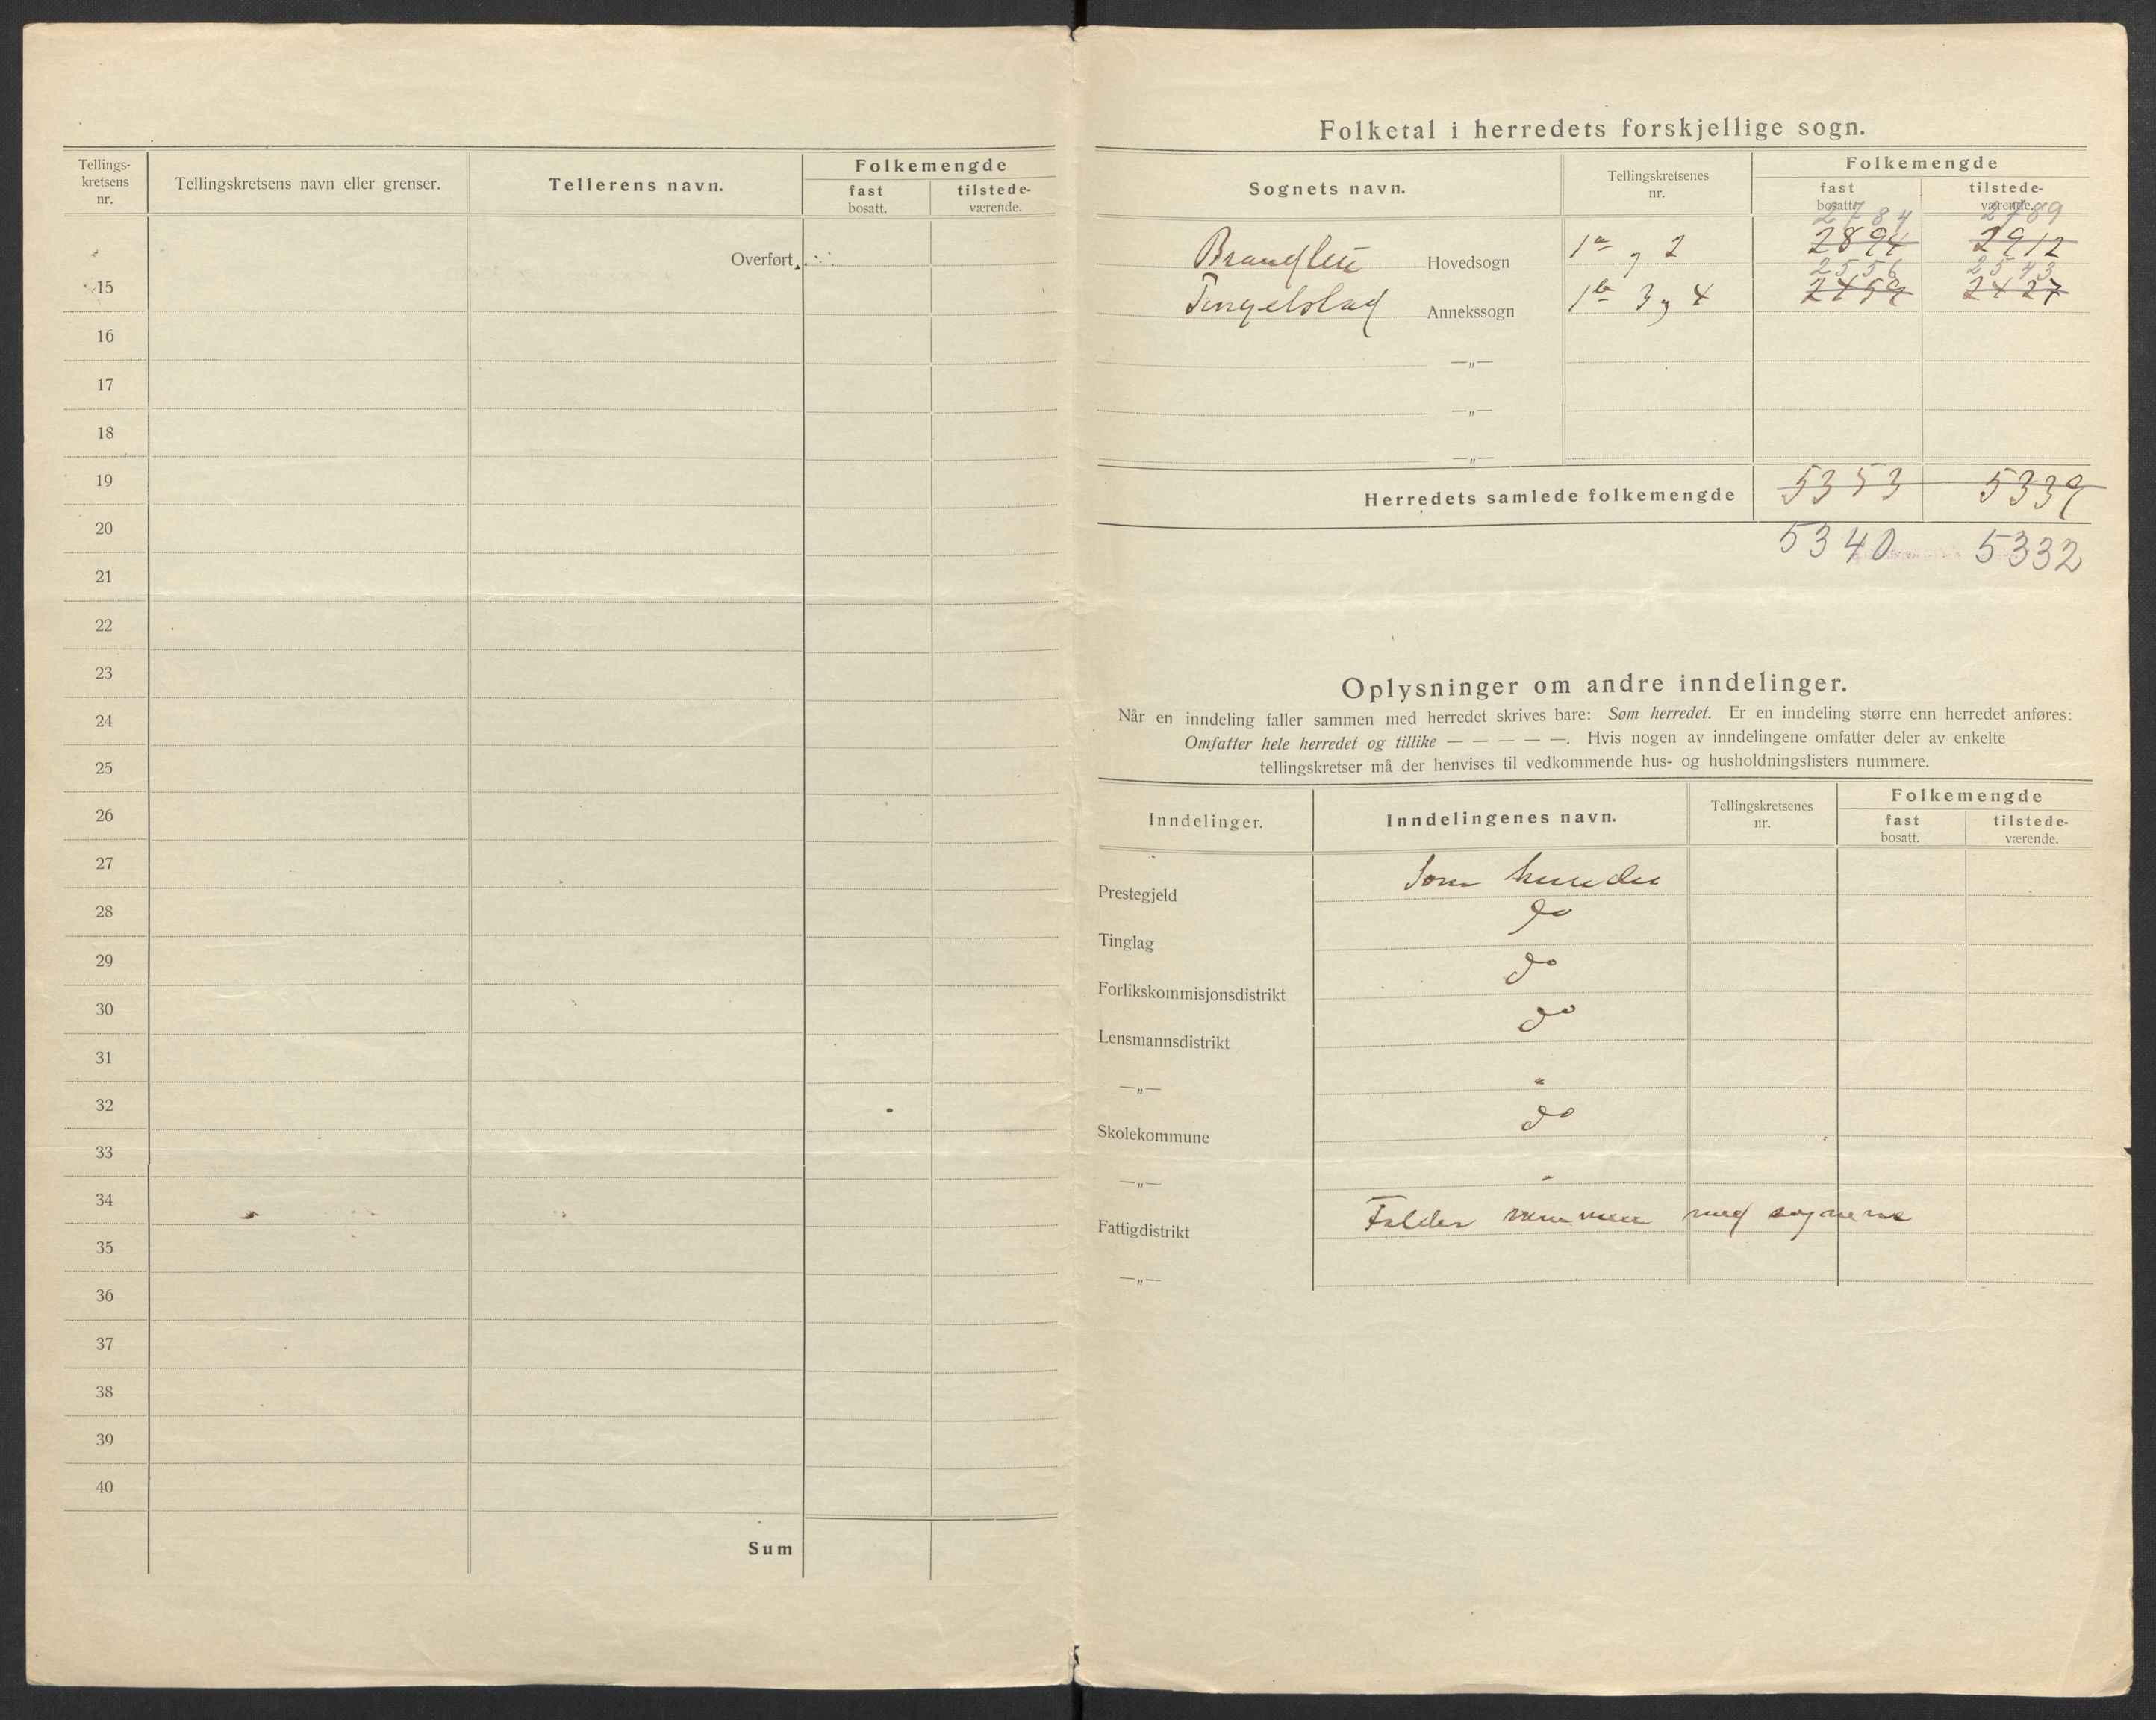 Tellings-
kretsens
nr.
Tellingskretsens navn eller grenser.
Tellerens navn.
Folkemengde
fast
bosatt.
tilstede-
værende.
Overført
15
16
17
18
19
20
21
22
23
24
25
26
27
28
29
30
31
32
33
34
35
36
37
38
39
40
Sum
Folketal i herredets forskjellige sogn.
Sognets navn.
Tellingskretsenes
nr.
Folkemengde
fast
bosatt.
tilstede-
værende.
2784 2789
Hovedsogn 1a og 2 2894 2912
2556 2543
Tingelstad Annekssogn 1b 3 og 4 2459 2427
—„—
—„—
—„—
Herredets samlede folkemengde 5353 5339
5340 5332
Oplysninger om andre inndelinger.
Når en inndeling faller sammen med herredet skrives bare: Som herredet. Er en inndeling større enn herredet anføres:
Omfatter hele herredet og tillike — — — — —. Hvis nogen av inndelingene omfatter deler av enkelte
tellingskretser må der henvises til vedkommende hus- og husholdningslisters nummere.
Inndelinger.
Inndelingenes navn.
Tellingskretsenes
nr.
Folkemengde
fast
bosatt.
tilstede-
værende.
Prestegjeld Som
Tinglag do
Forlikskommisjonsdistrikt do
Lensmannsdistrikt do
—„— "
Skolekommune do
—„— "
Fattigdistrikt Falder sammen med sognene
—„—